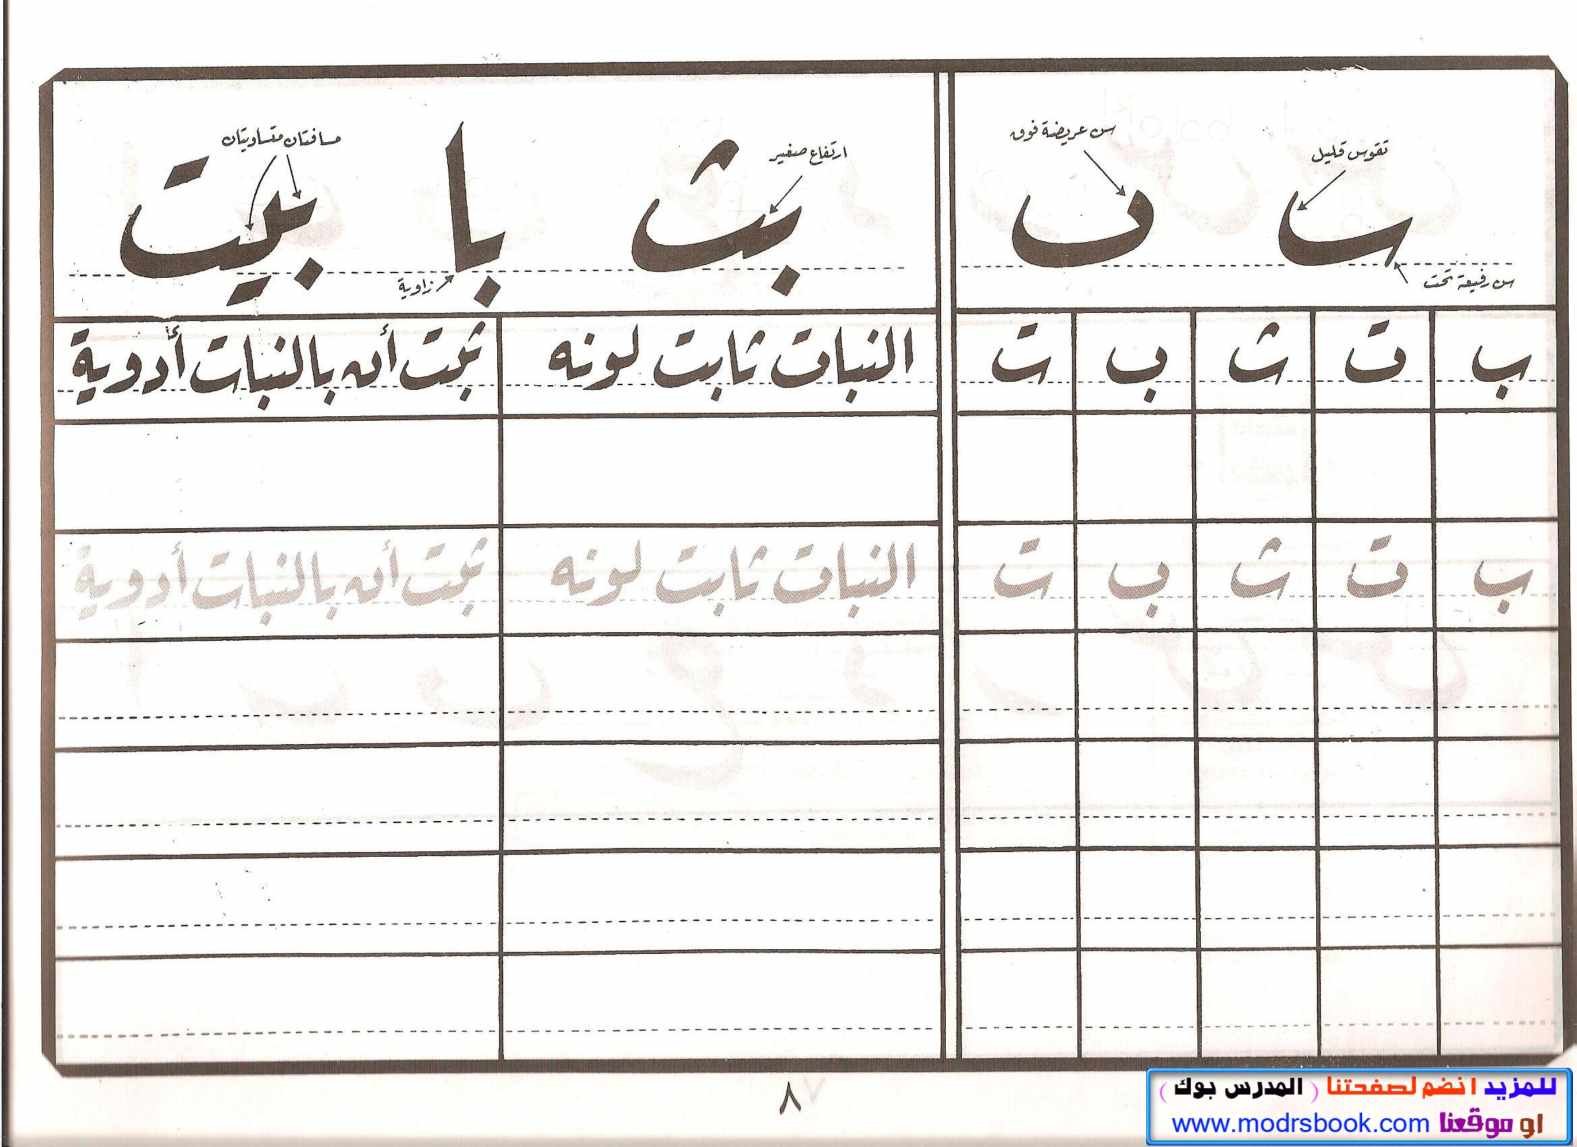 سن عريضة فوق
تقوس قليل
سن رفيعة تحت
ارتفاع صغير
مسافتان متساويتان
زاوية
بث با بيت
ب ت ث ب ت
النبات ثابت لونه
ثبت أن بالنبات أدوية
ب ت ث ب ت
النبات ثابت لونه
ثبت أن بالنبات أدوية
٨
للمزيد انضم لصفحتنا ( المدرس بوك )
او موقعنا www.modrsbook.com